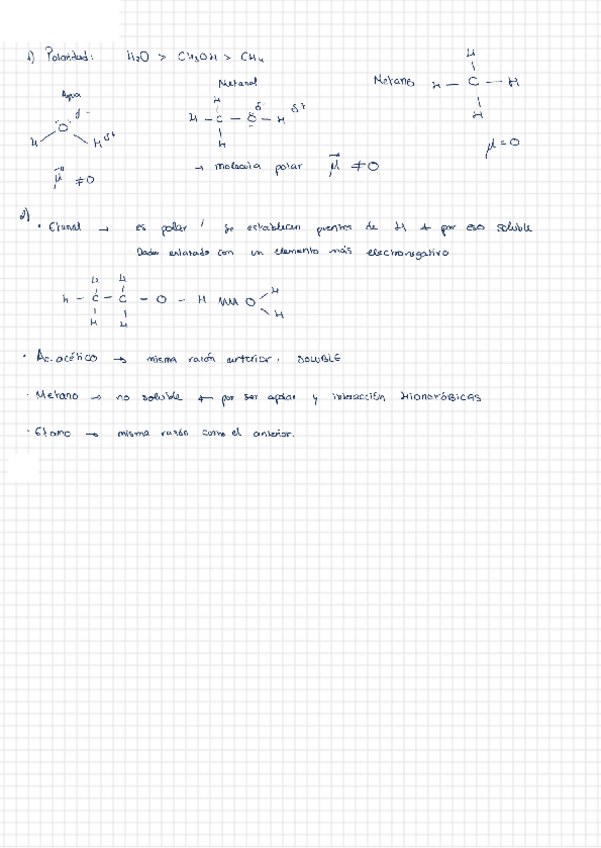 1) Polaridad: H₂O > CH₃OH > CH₄
Agua Metanol Metano
H
H δ- δ+ H — C — H
δ- H — C — O — H H
O
H H δ+ H
μ = 0
μ ≠ 0 → molécula polar μ ≠ 0
2)
· Etanol → es polar y se establecen puentes de H ← por eso soluble
Dador enlazado con un elemento más electronegativo
H H
H — C — C — O — H O H
H H H
· Ac. acético → misma razón anterior, SOLUBLE
· Metano → no soluble ← por ser apolar y interacción HIDROFÓBICAS
· Etano → misma razón como el anterior.